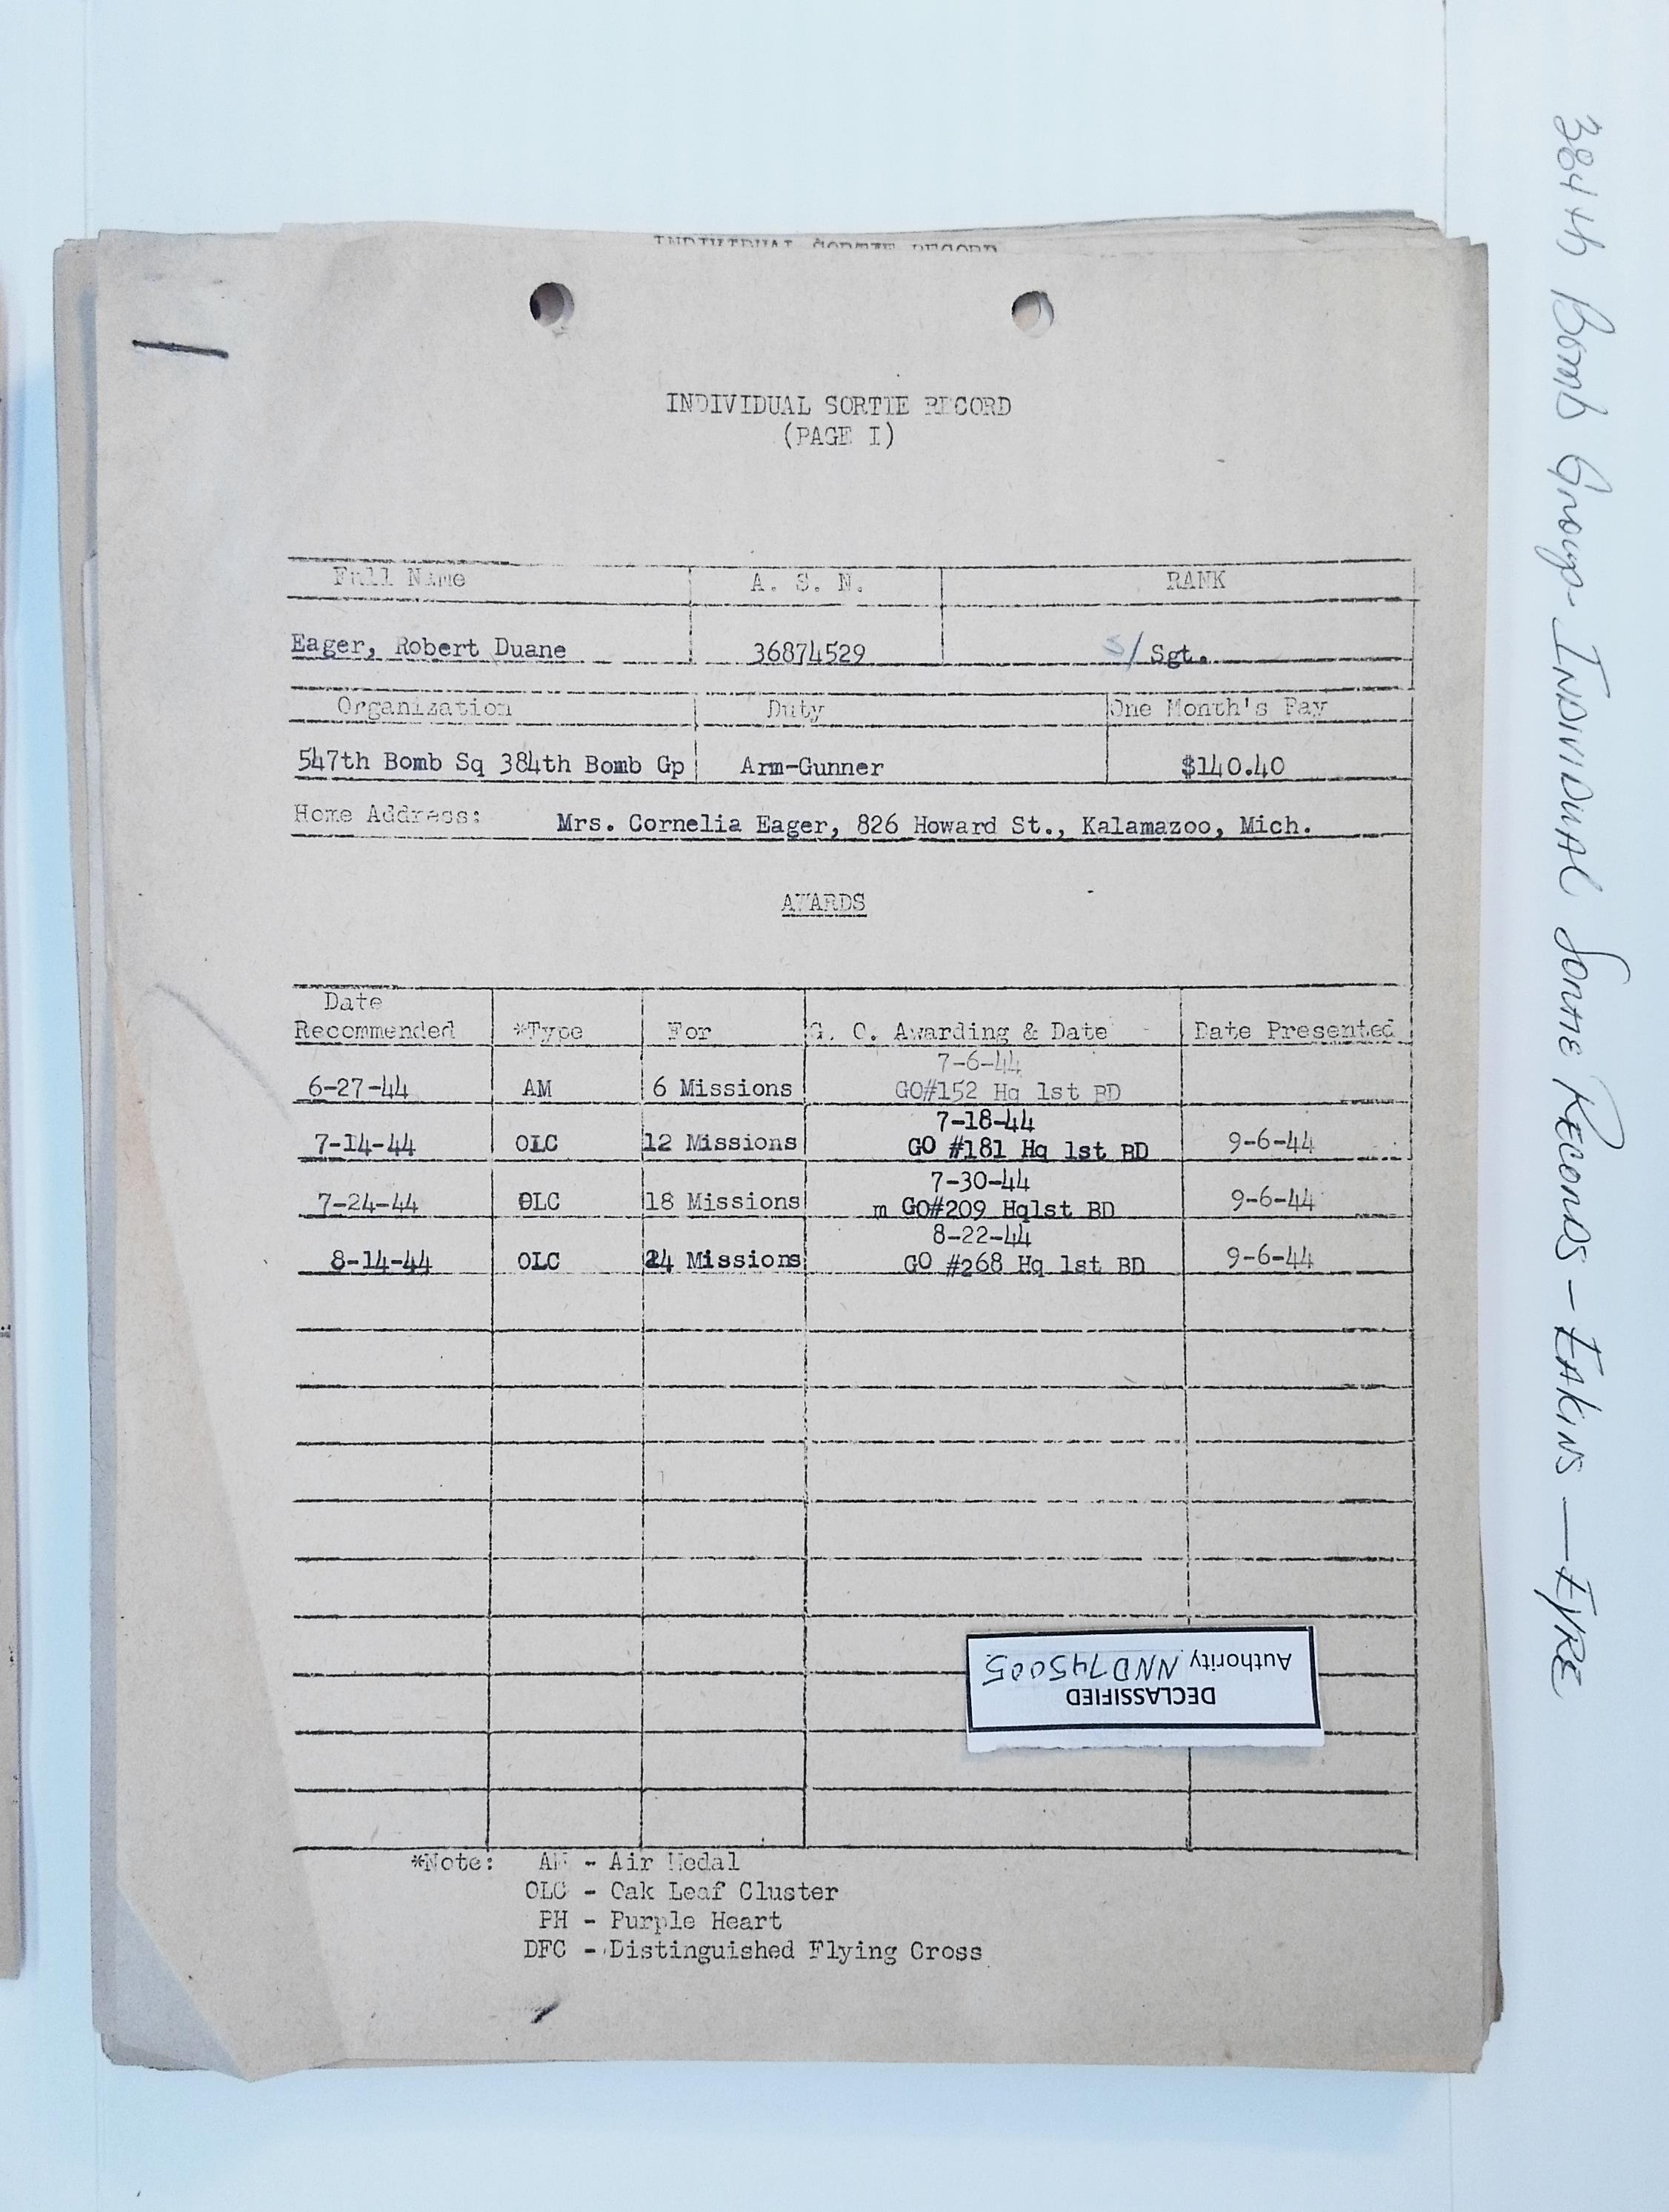 INDIVIDUAL SORTIE RECORD
INDIVIDUAL SORTIE RECORD
(PAGE I)
Full Name A. S. N. RANK
Eager, Robert Duane 36874529 S/ Sgt.
Organization Duty One Month's Pay
547th Bomb Sq 384th Bomb Gp Arm-Gunner $140.40
Home Address: Mrs. Cornelia Eager, 826 Howard St., Kalamazoo, Mich.
AWARDS
Date
Recommended *Type For G. O. Awarding & Date Date Presented
7-6-44
6-27-44 AM 6 Missions GO#152 Hq 1st BD
7-18-44
7-14-44 OLC 12 Missions GO #181 Hq 1st BD 9-6-44
7-30-44
7-24-44 OLC 18 Missions m GO#209 Hq1st BD 9-6-44
8-22-44
8-14-44 OLC 24 Missions GO #268 Hq 1st BD 9-6-44
DECLASSIFIED
Authority NND745005
*Note: AM - Air Medal
OLC - Oak Leaf Cluster
PH - Purple Heart
DFC - Distinguished Flying Cross
384th Bomb Group - Individual Sortie Records - Eakins — Eyre